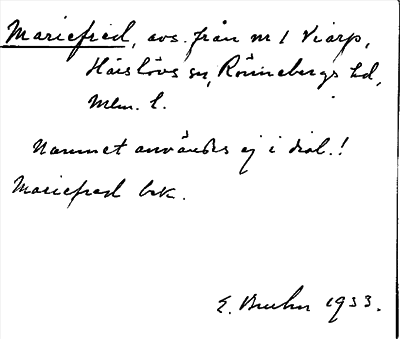 Mariefred, avs. från nr 1 Viarp,
Häslövs sn, Rönnebergs hd,
Mlm. l.
Namnet användes ej i dial.!
Mariefred bek.
E. Bruhn 1933.